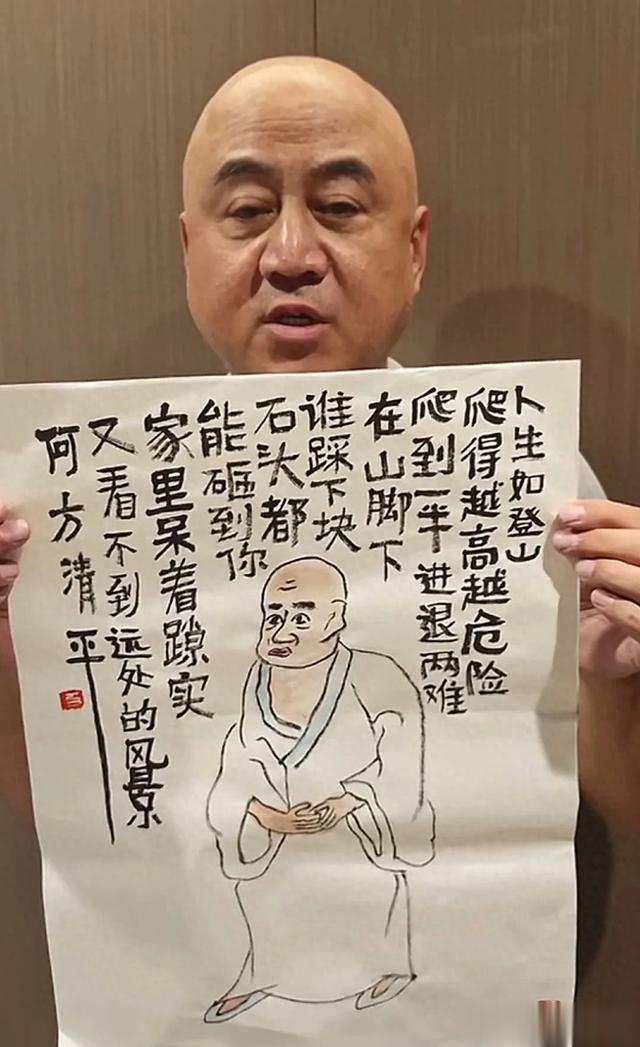 人生如登山
爬得越高越危险
爬到一半进退两难
在山脚下
谁踩下块
石头都
能砸到你
家里呆着踏实
又看不到远处的风景
何方清平